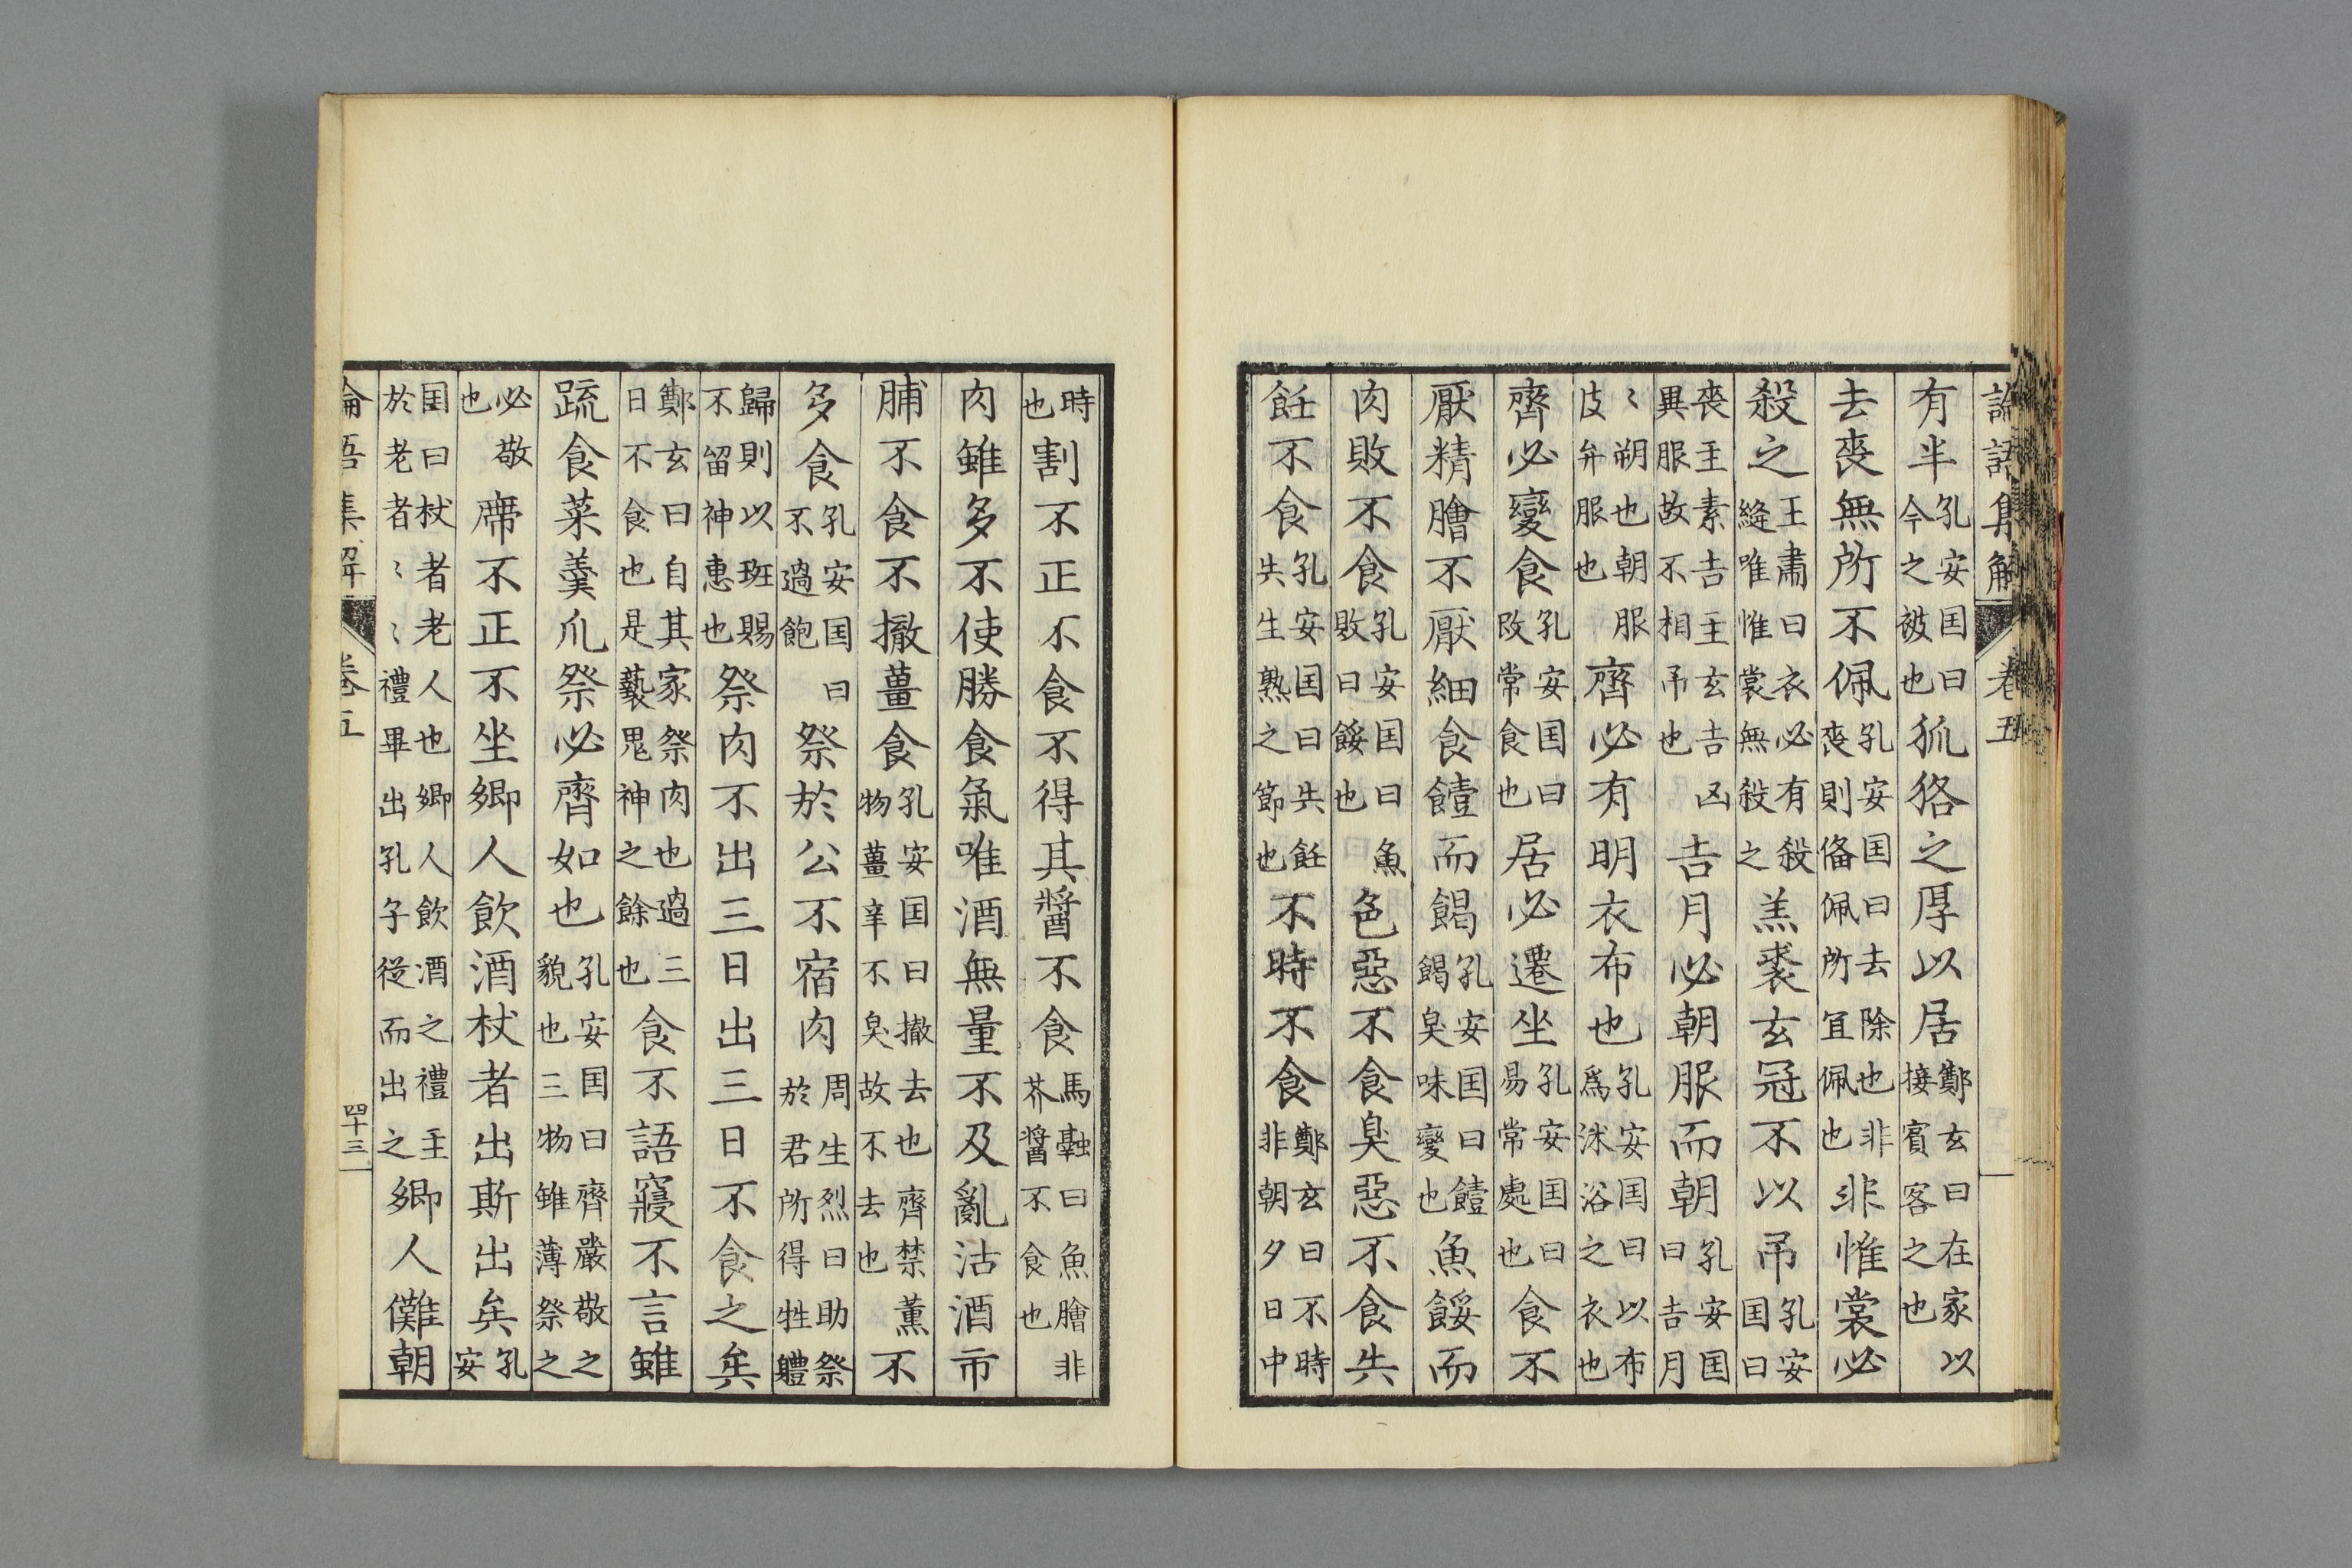 論語集解　卷五
有半孔安囯曰今之被也狐狢之厚以居鄭玄曰在家以接賔客之也
去喪無所不佩孔安囯曰去除也非喪則俻佩所冝佩也非惟裳必
殺之王肅曰衣必有殺縫唯惟裳無殺之羔裘玄冠不以吊孔安囯曰
喪主素吉主玄吉凶異服故不相吊也吉月必朝服而朝孔安囯曰吉月
〻朔也朝服皮弁服也齊必有明衣布也孔安囯曰以布為沐浴之衣也
齊必變食孔安囯曰改常食也居必遷坐孔安囯曰易常處也食不
厭精膾不厭細食饐而餲孔安囯曰饐餲臭味變也魚餒而
肉敗不食孔安囯曰魚敗曰餒也色惡不食臭惡不食失
飪不食孔安囯曰失飪失生熟之節也不時不食鄭玄曰不時非朝夕日中
時也割不正不食不得其醬不食馬融曰魚膾非芥醬不食也
肉雖多不使勝食氣唯酒無量不及亂沽酒市
脯不食不撤薑食孔安囯曰撤去也齊禁薰物薑辛不臭故不去也不
多食孔安囯曰不過飽祭於公不宿肉周生烈曰助祭於君所得牲軆
歸則以班賜不留神惠也祭肉不出三日出三日不食之矣
鄭玄曰自其家祭肉也過三日不食也是褻鬼神之餘也食不語寢不言雖
疏食菜羹瓜祭必齊如也孔安囯曰齊嚴敬之貌也三物雖薄祭之
必敬也席不正不坐鄉人飲酒杖者出斯出矣孔安
囯曰杖者老人也鄉人飲酒之禮主於老者〻〻禮畢出孔子從而出之鄉人儺朝
論語集解　卷五　四十三